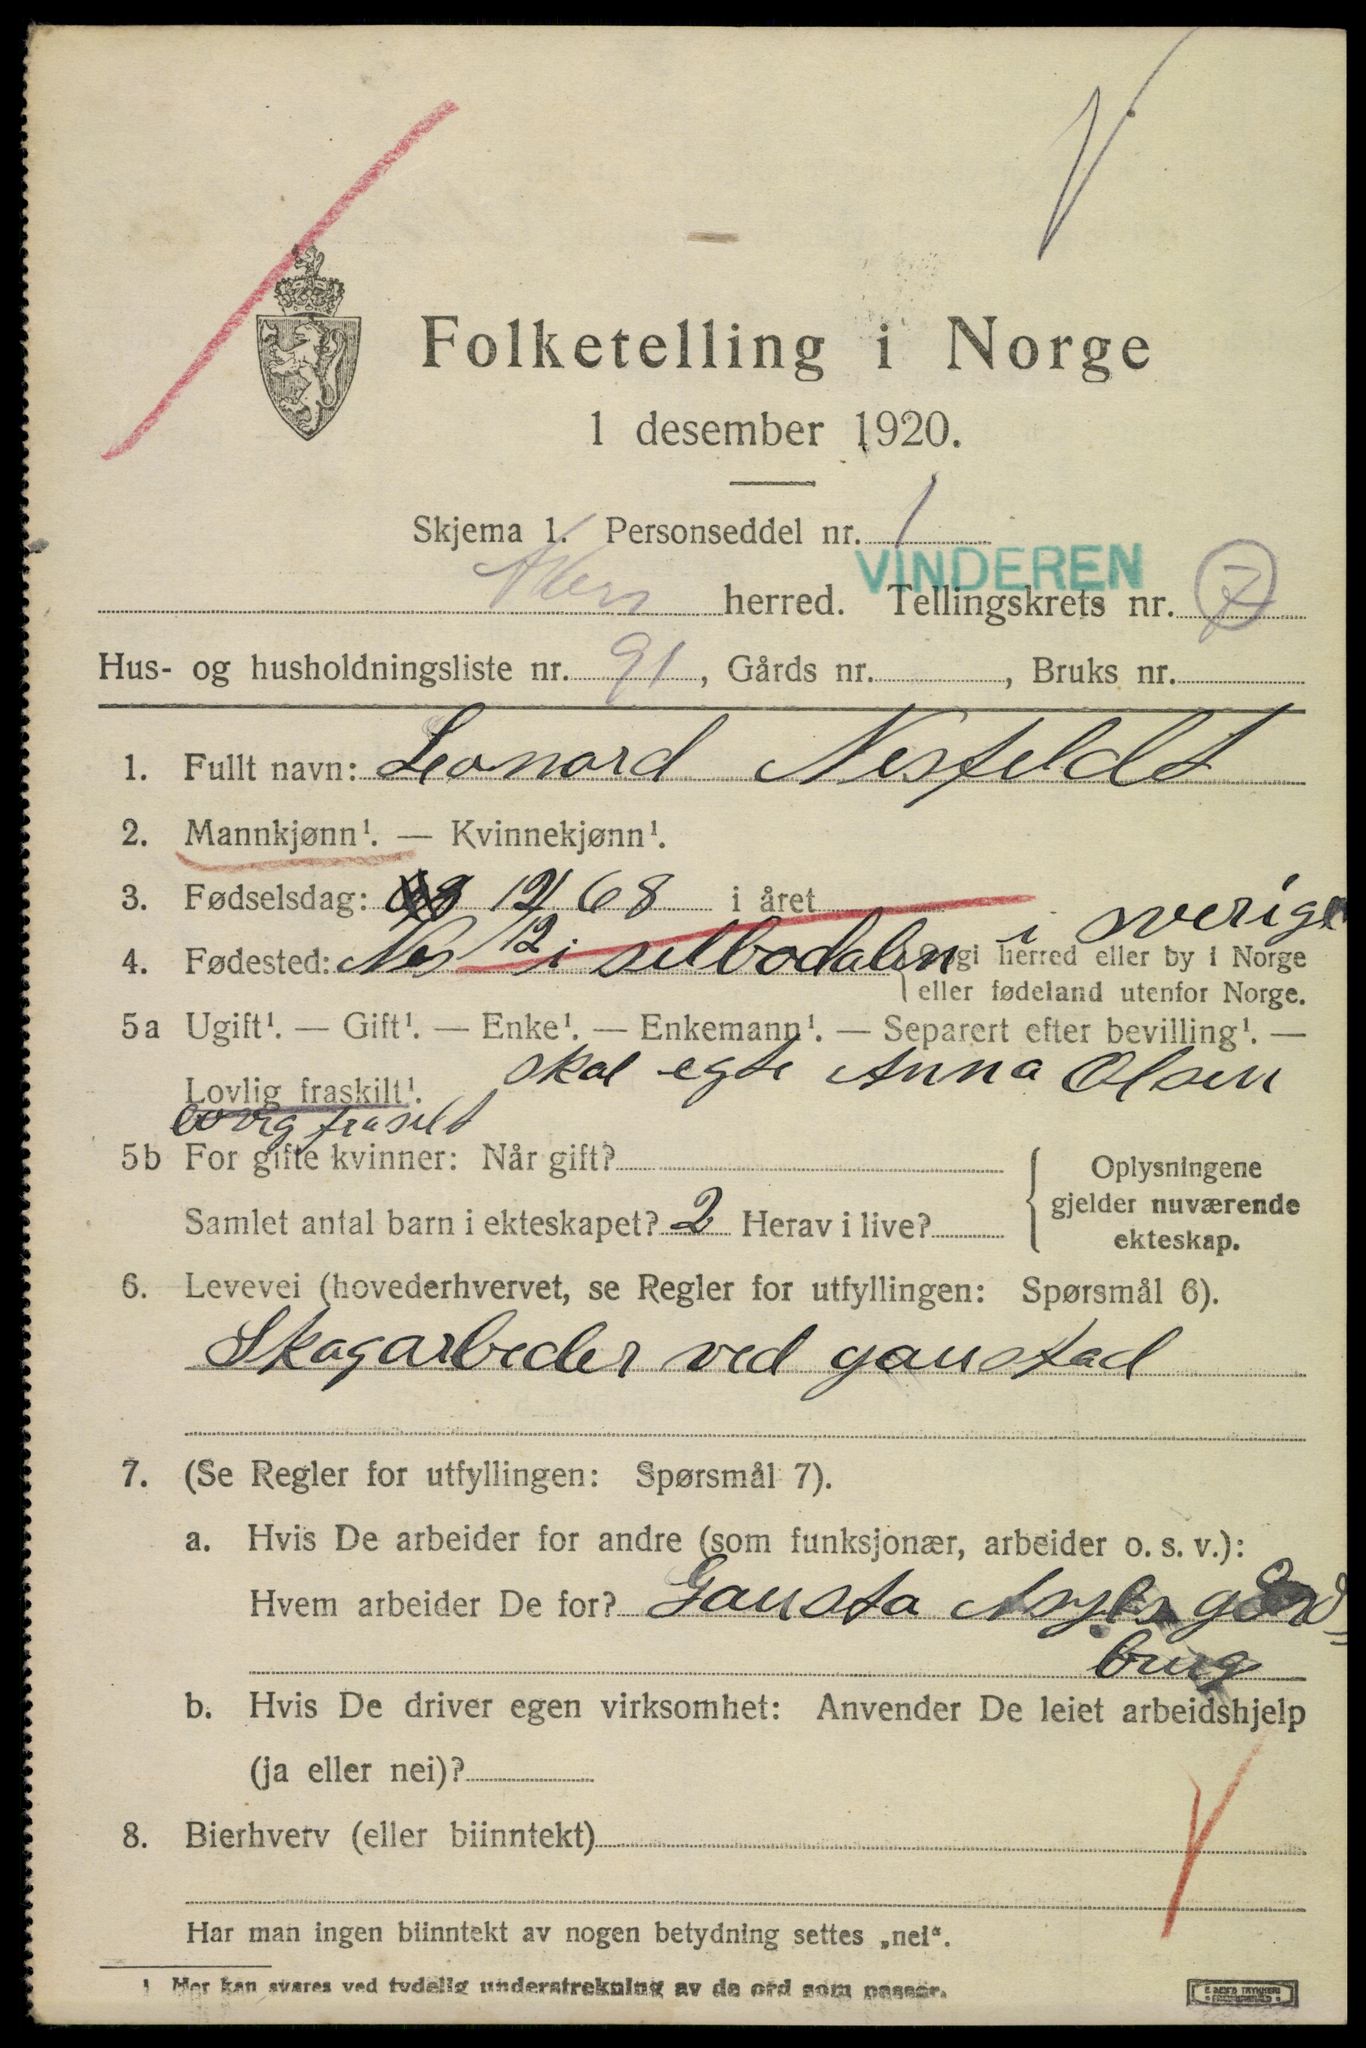 Folketelling i Norge
1 desember 1920.
Skjema 1. Personseddel nr. 1
VINDEREN
Akers herred. Tellingskrets nr. 7
Hus- og husholdningsliste nr. 91, Gårds nr. , Bruks nr.
1. Fullt navn: Leonard Nesfeldt
2. Mannkjønn¹. — Kvinnekjønn¹.
3. Fødselsdag: 12/12 68 i året
4. Fødested: Nes i silbodalen i sverige
Opgi herred eller by i Norge
eller fødeland utenfor Norge.
5a Ugift¹. — Gift¹. — Enke¹. — Enkemann¹. — Separert efter bevilling¹. —
Lovlig fraskilt¹. skal egte Anna Olsen
lovig fraskilt
5b For gifte kvinner: Når gift?
Samlet antal barn i ekteskapet? 2 Herav i live?
Oplysningene
gjelder nuværende
ekteskap.
6. Levevei (hovederhvervet, se Regler for utfyllingen: Spørsmål 6).
Skogarbeder ved gaustad
7. (Se Regler for utfyllingen: Spørsmål 7).
a. Hvis De arbeider for andre (som funksjonær, arbeider o. s. v.):
Hvem arbeider De for? Gausta Asyls gård
brug
b. Hvis De driver egen virksomhet: Anvender De leiet arbeidshjelp
(ja eller nei)?
8. Bierhverv (eller biinntekt)
Har man ingen biinntekt av nogen betydning settes „nei“.
¹ Her kan svares ved tydelig understrekning av de ord som passer.